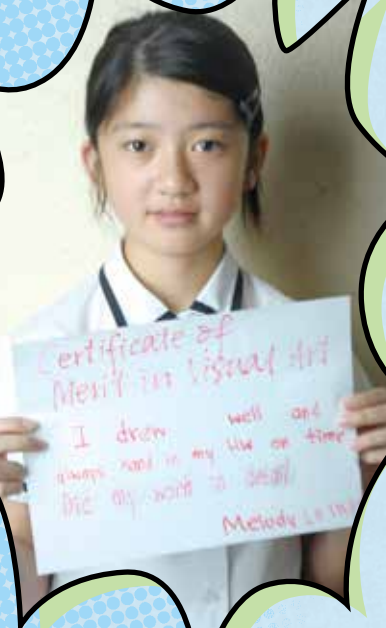 Certificate of
Merit in Visual Art
I drew well and
always hand in my HW on time
my work is
Melody